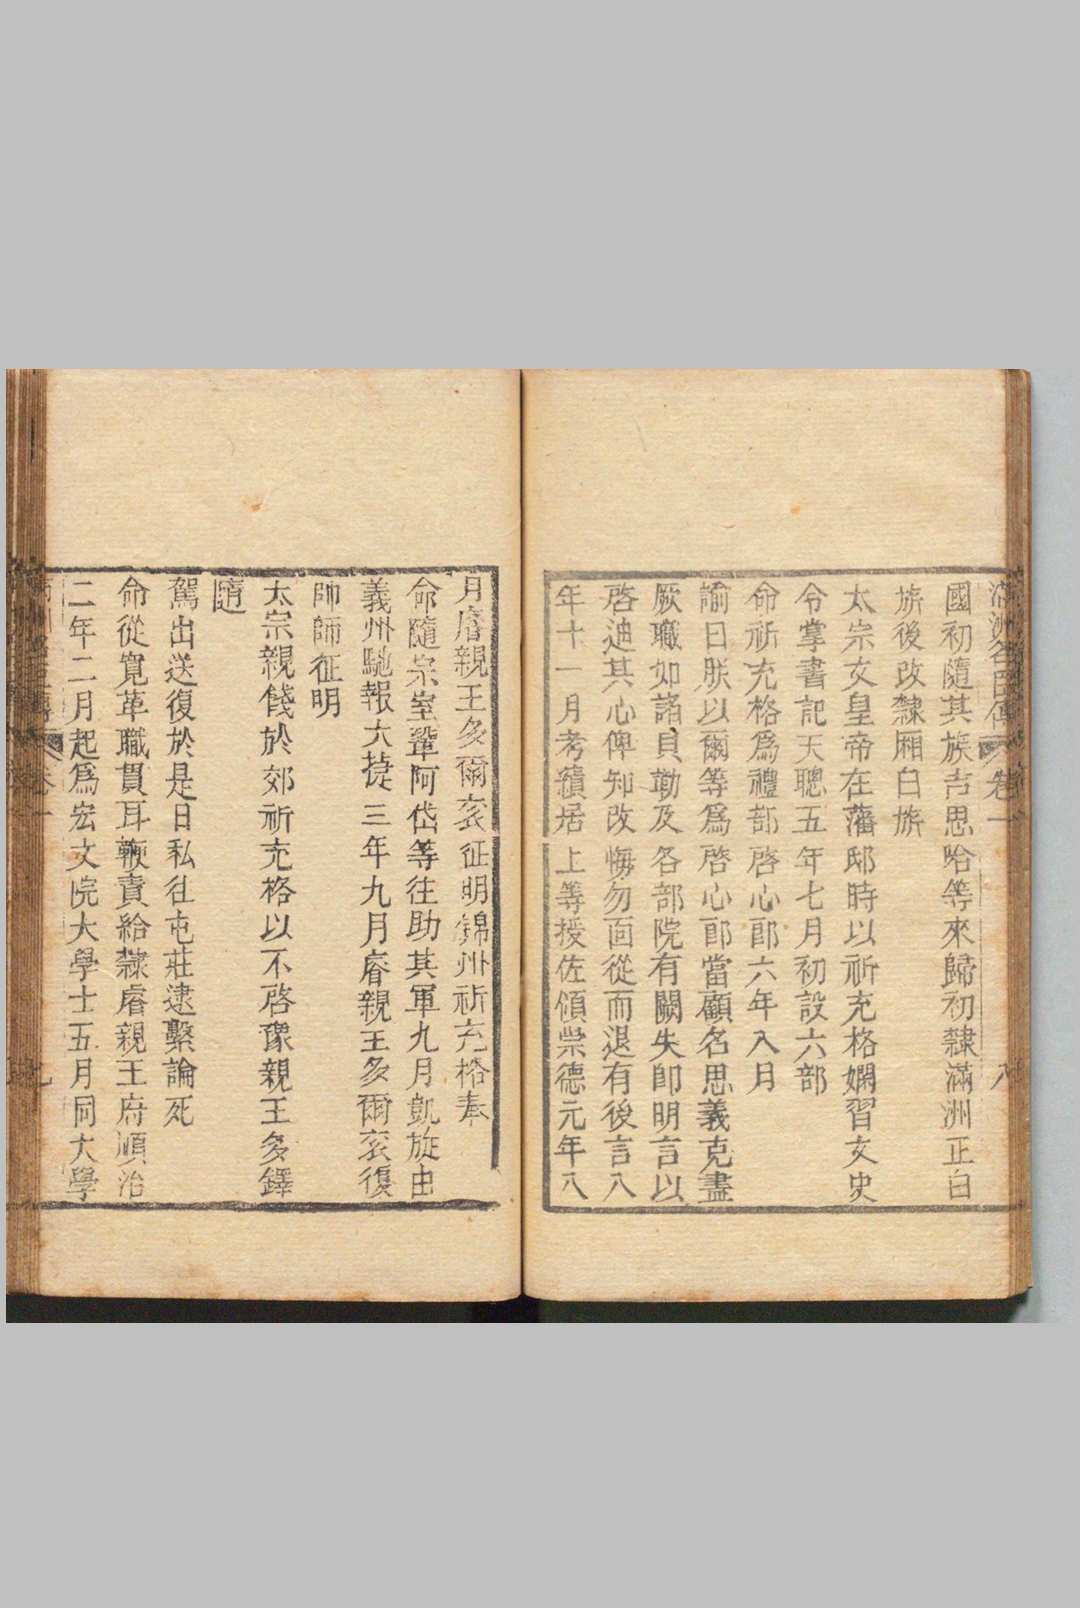 滿洲名臣傳 卷一 八
國初隨其族吉思哈等來歸初隸滿洲正白
旗後改隸廂白旗
太宗文皇帝在藩邸時以祈充格嫻習文史
令掌書記天聰五年七月初設六部
命祈充格爲禮部啓心郎六年八月
諭曰朕以爾等爲啓心郎當顧名思義克盡
厥職如諸貝勒及各部院有闕失卽明言以
啓迪其心俾知改悔勿面從而退有後言八
年十一月考績居上等授佐領崇德元年八
月睿親王多爾袞征明錦州祈充格奉
命隨宗室鞏阿岱等往助其軍九月凱旋由
義州馳報大捷三年九月睿親王多爾袞復
帥師征明
太宗親餞於郊祈充格以不啓豫親王多鐸
隨
駕出送復於是日私往屯莊逮繫論死
命從寬革職貫耳鞭責給隸睿親王府順治
二年二月起爲宏文院大學士五月同大學